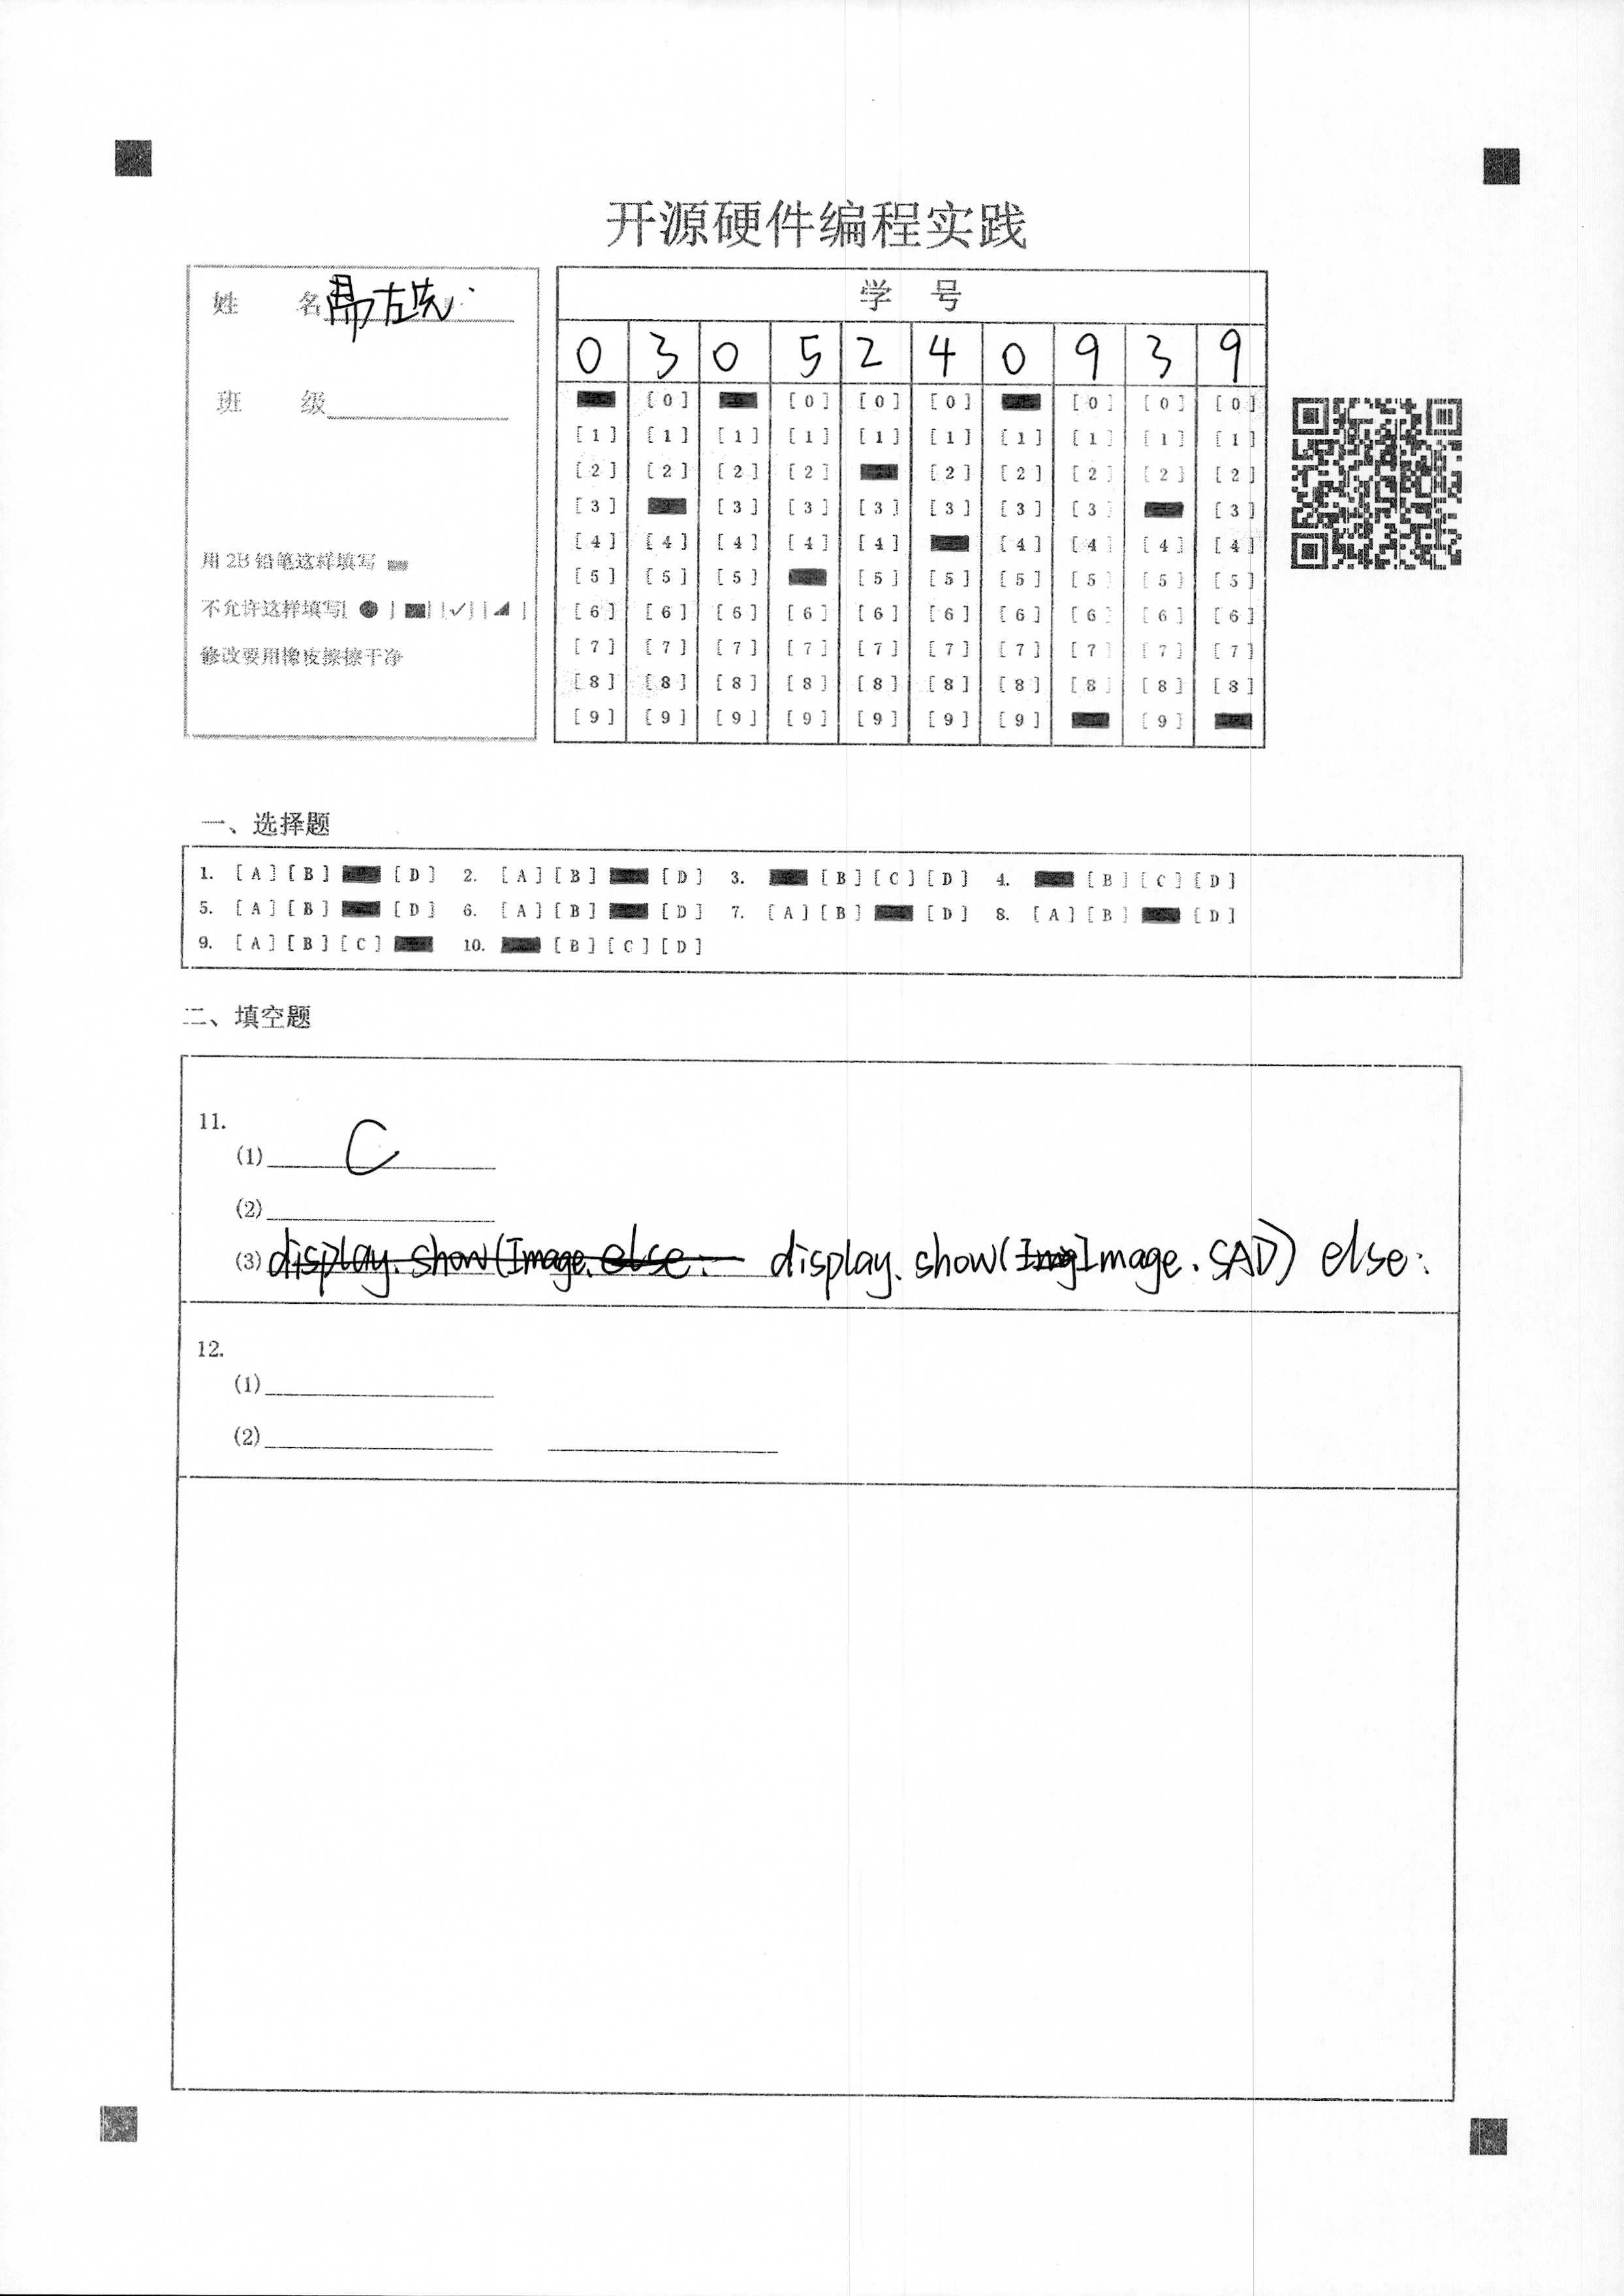 开源硬件编程实践
姓 名
班 级
用 2B 铅笔这样填写
不允许这样填写[ ● ] [■] [✓] [◢ ]
修改要用橡皮擦擦干净
学 号
0 3 0 5 2 4 0 9 3 9
[0] [0] [0] [0] [0] [0] [0]
[1] [1] [1] [1] [1] [1] [1] [1] [1] [1]
[2] [2] [2] [2] [2] [2] [2] [2] [2]
[3] [3] [3] [3] [3] [3] [3] [3]
[4] [4] [4] [4] [4] [4] [4] [4] [4]
[5] [5] [5] [5] [5] [5] [5] [5] [5]
[6] [6] [6] [6] [6] [6] [6] [6] [6] [6]
[7] [7] [7] [7] [7] [7] [7] [7] [7] [7]
[8] [8] [8] [8] [8] [8] [8] [8] [8] [8]
[9] [9] [9] [9] [9] [9] [9] [9]
一、选择题
1. [A] [B] [D] 2. [A] [B] [D] 3. [B] [C] [D] 4. [B] [C] [D]
5. [A] [B] [D] 6. [A] [B] [D] 7. [A] [B] [D] 8. [A] [B] [D]
9. [A] [B] [C] 10. [B] [C] [D]
二、填空题
11.
(1) C
(2)
(3) display.show(Image.else: display.show(ImgImage.SAD) else:
12.
(1)
(2)